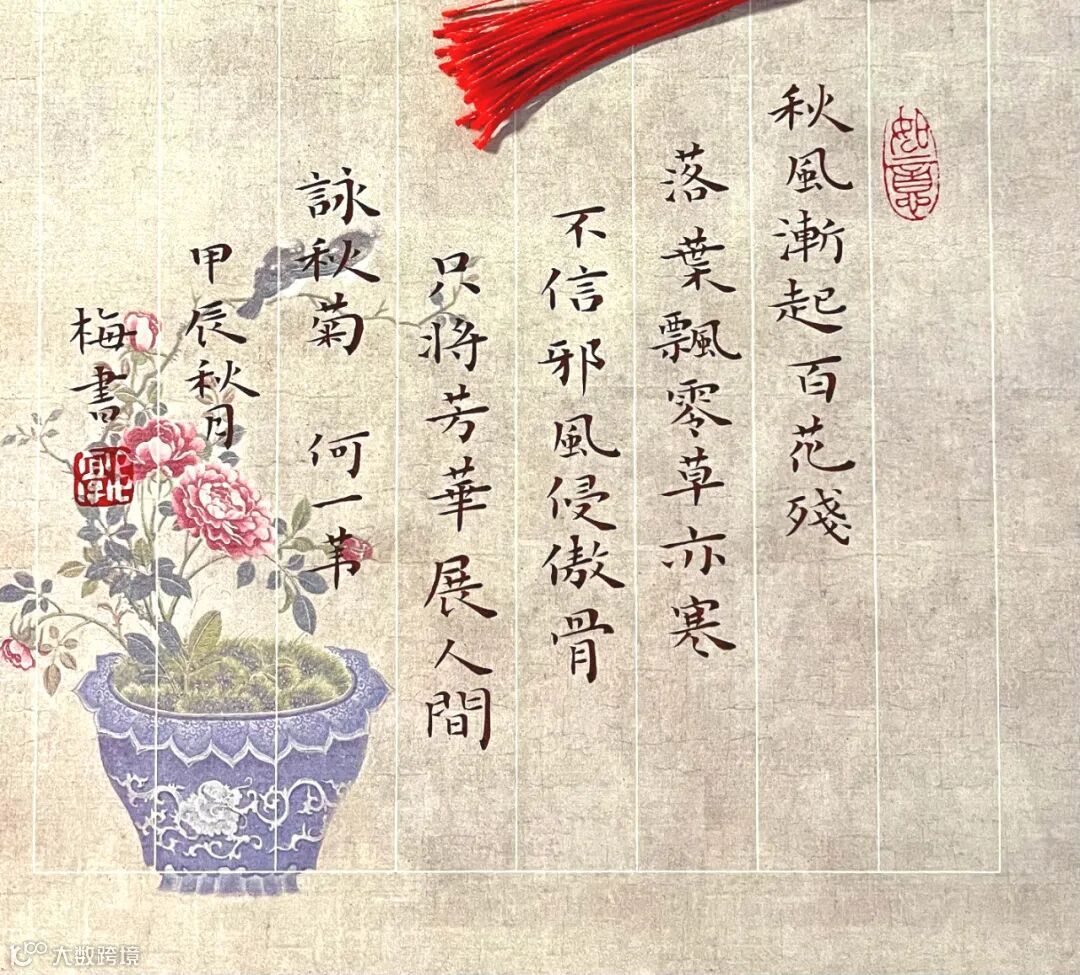 如意
秋風漸起百花殘
落葉飄零草亦寒
不信邪風侵傲骨
只將芳華展人間
詠秋菊 何一苇
甲辰秋月
梅書
大数跨境